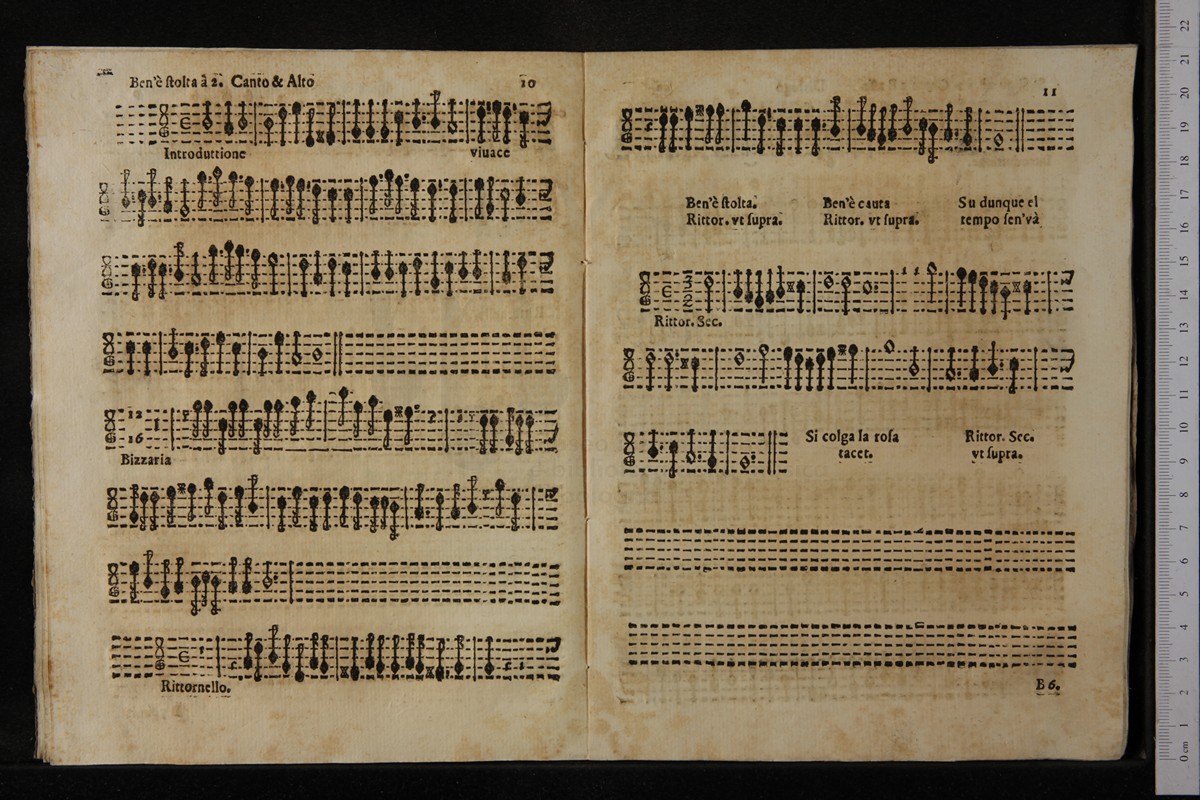 Ben'è ſtolta à 2. Canto & Alto
10
Introduttione
viuace
12
16
Bizzaria
Rittornello.
11
Ben'è ſtolta.
Rittor. vt ſupra.
Ben'è cauta
Rittor. vt ſupra.
Su dunque el
tempo ſen'và
3
2
Rittor. Sec.
Si colga la roſa
tacet.
Rittor. Sec.
vt ſupra.
B 6.
0 cm 1 2 3 4 5 6 7 8 9 10 11 12 13 14 15 16 17 18 19 20 21 22